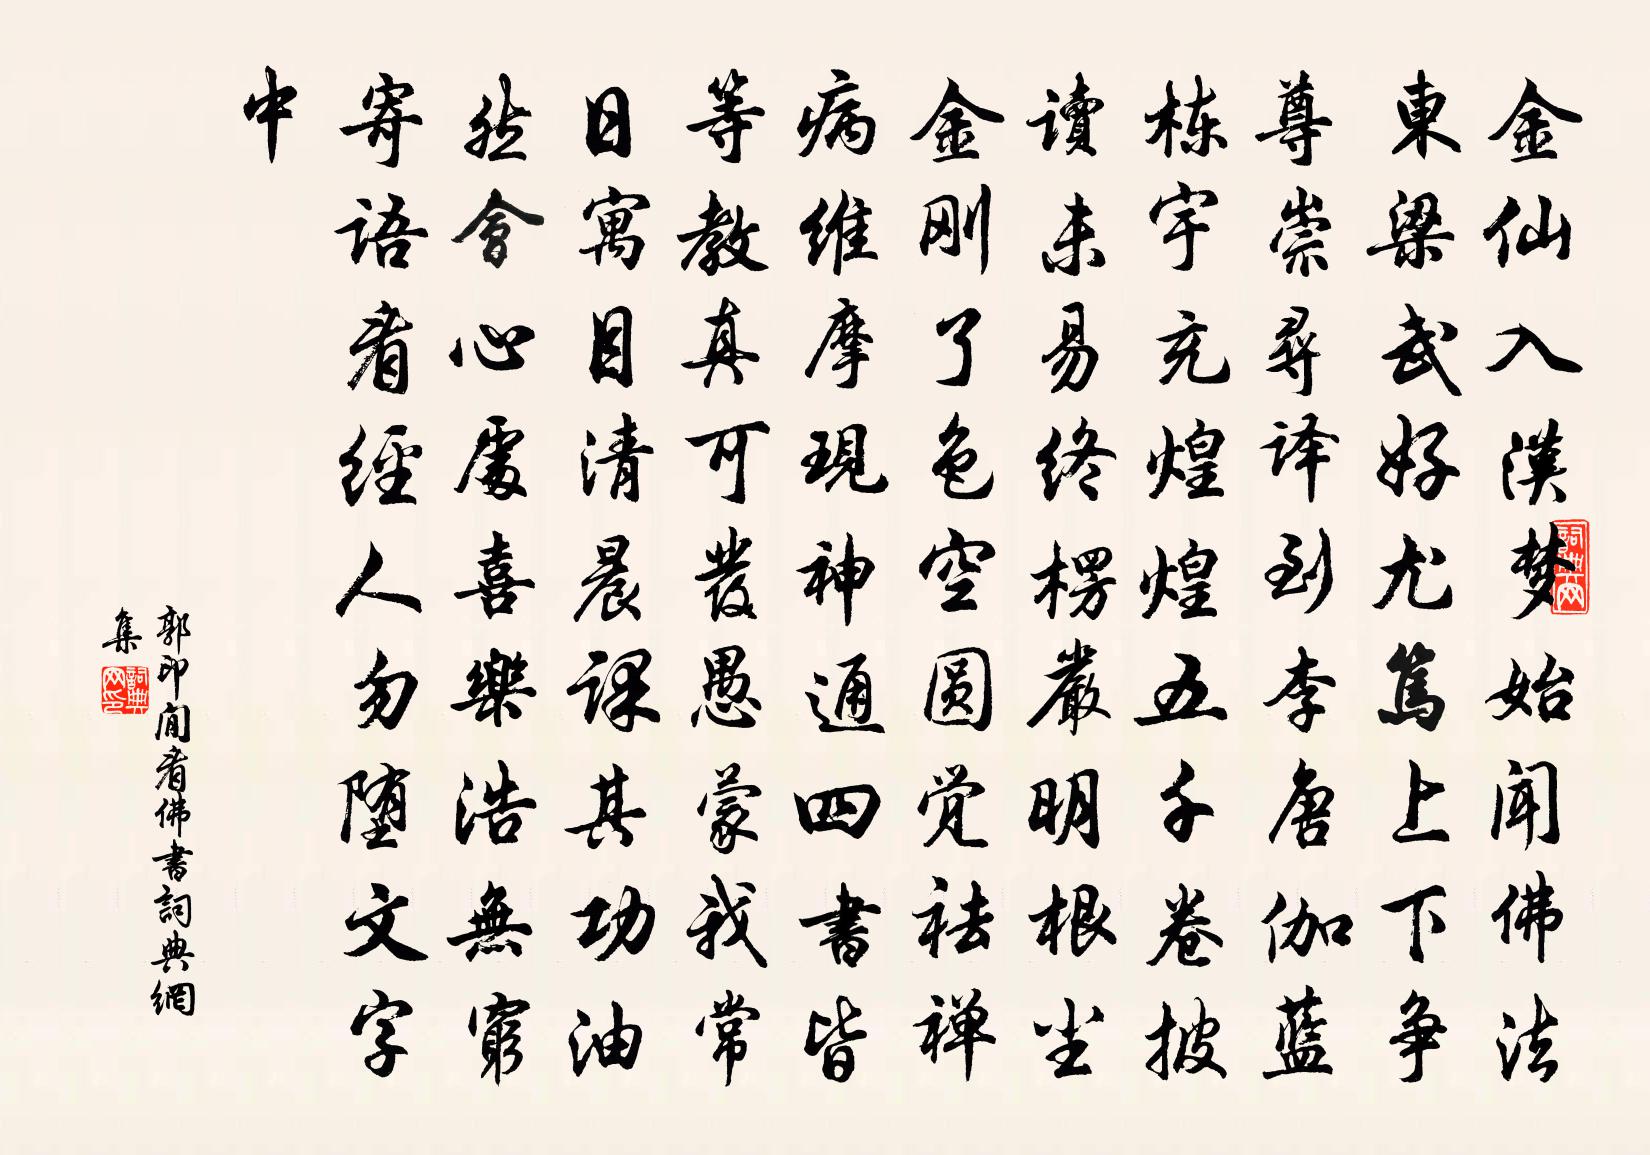 金仙入漢梦始闻佛法
東梁武好尤篤上下争
尊崇尋译到李唐伽藍
栋宇充煌煌五千卷披
讀未易终楞嚴明根尘
金刚了色空圆觉祛禅
病維摩現神通四書皆
等教真可發愚蒙我常
日寓目清晨课其功油
然會心處喜樂浩無窮
寄语看經人勿堕文字
中
郭印閒看佛書詞典網
集
詞典网
詞典网印